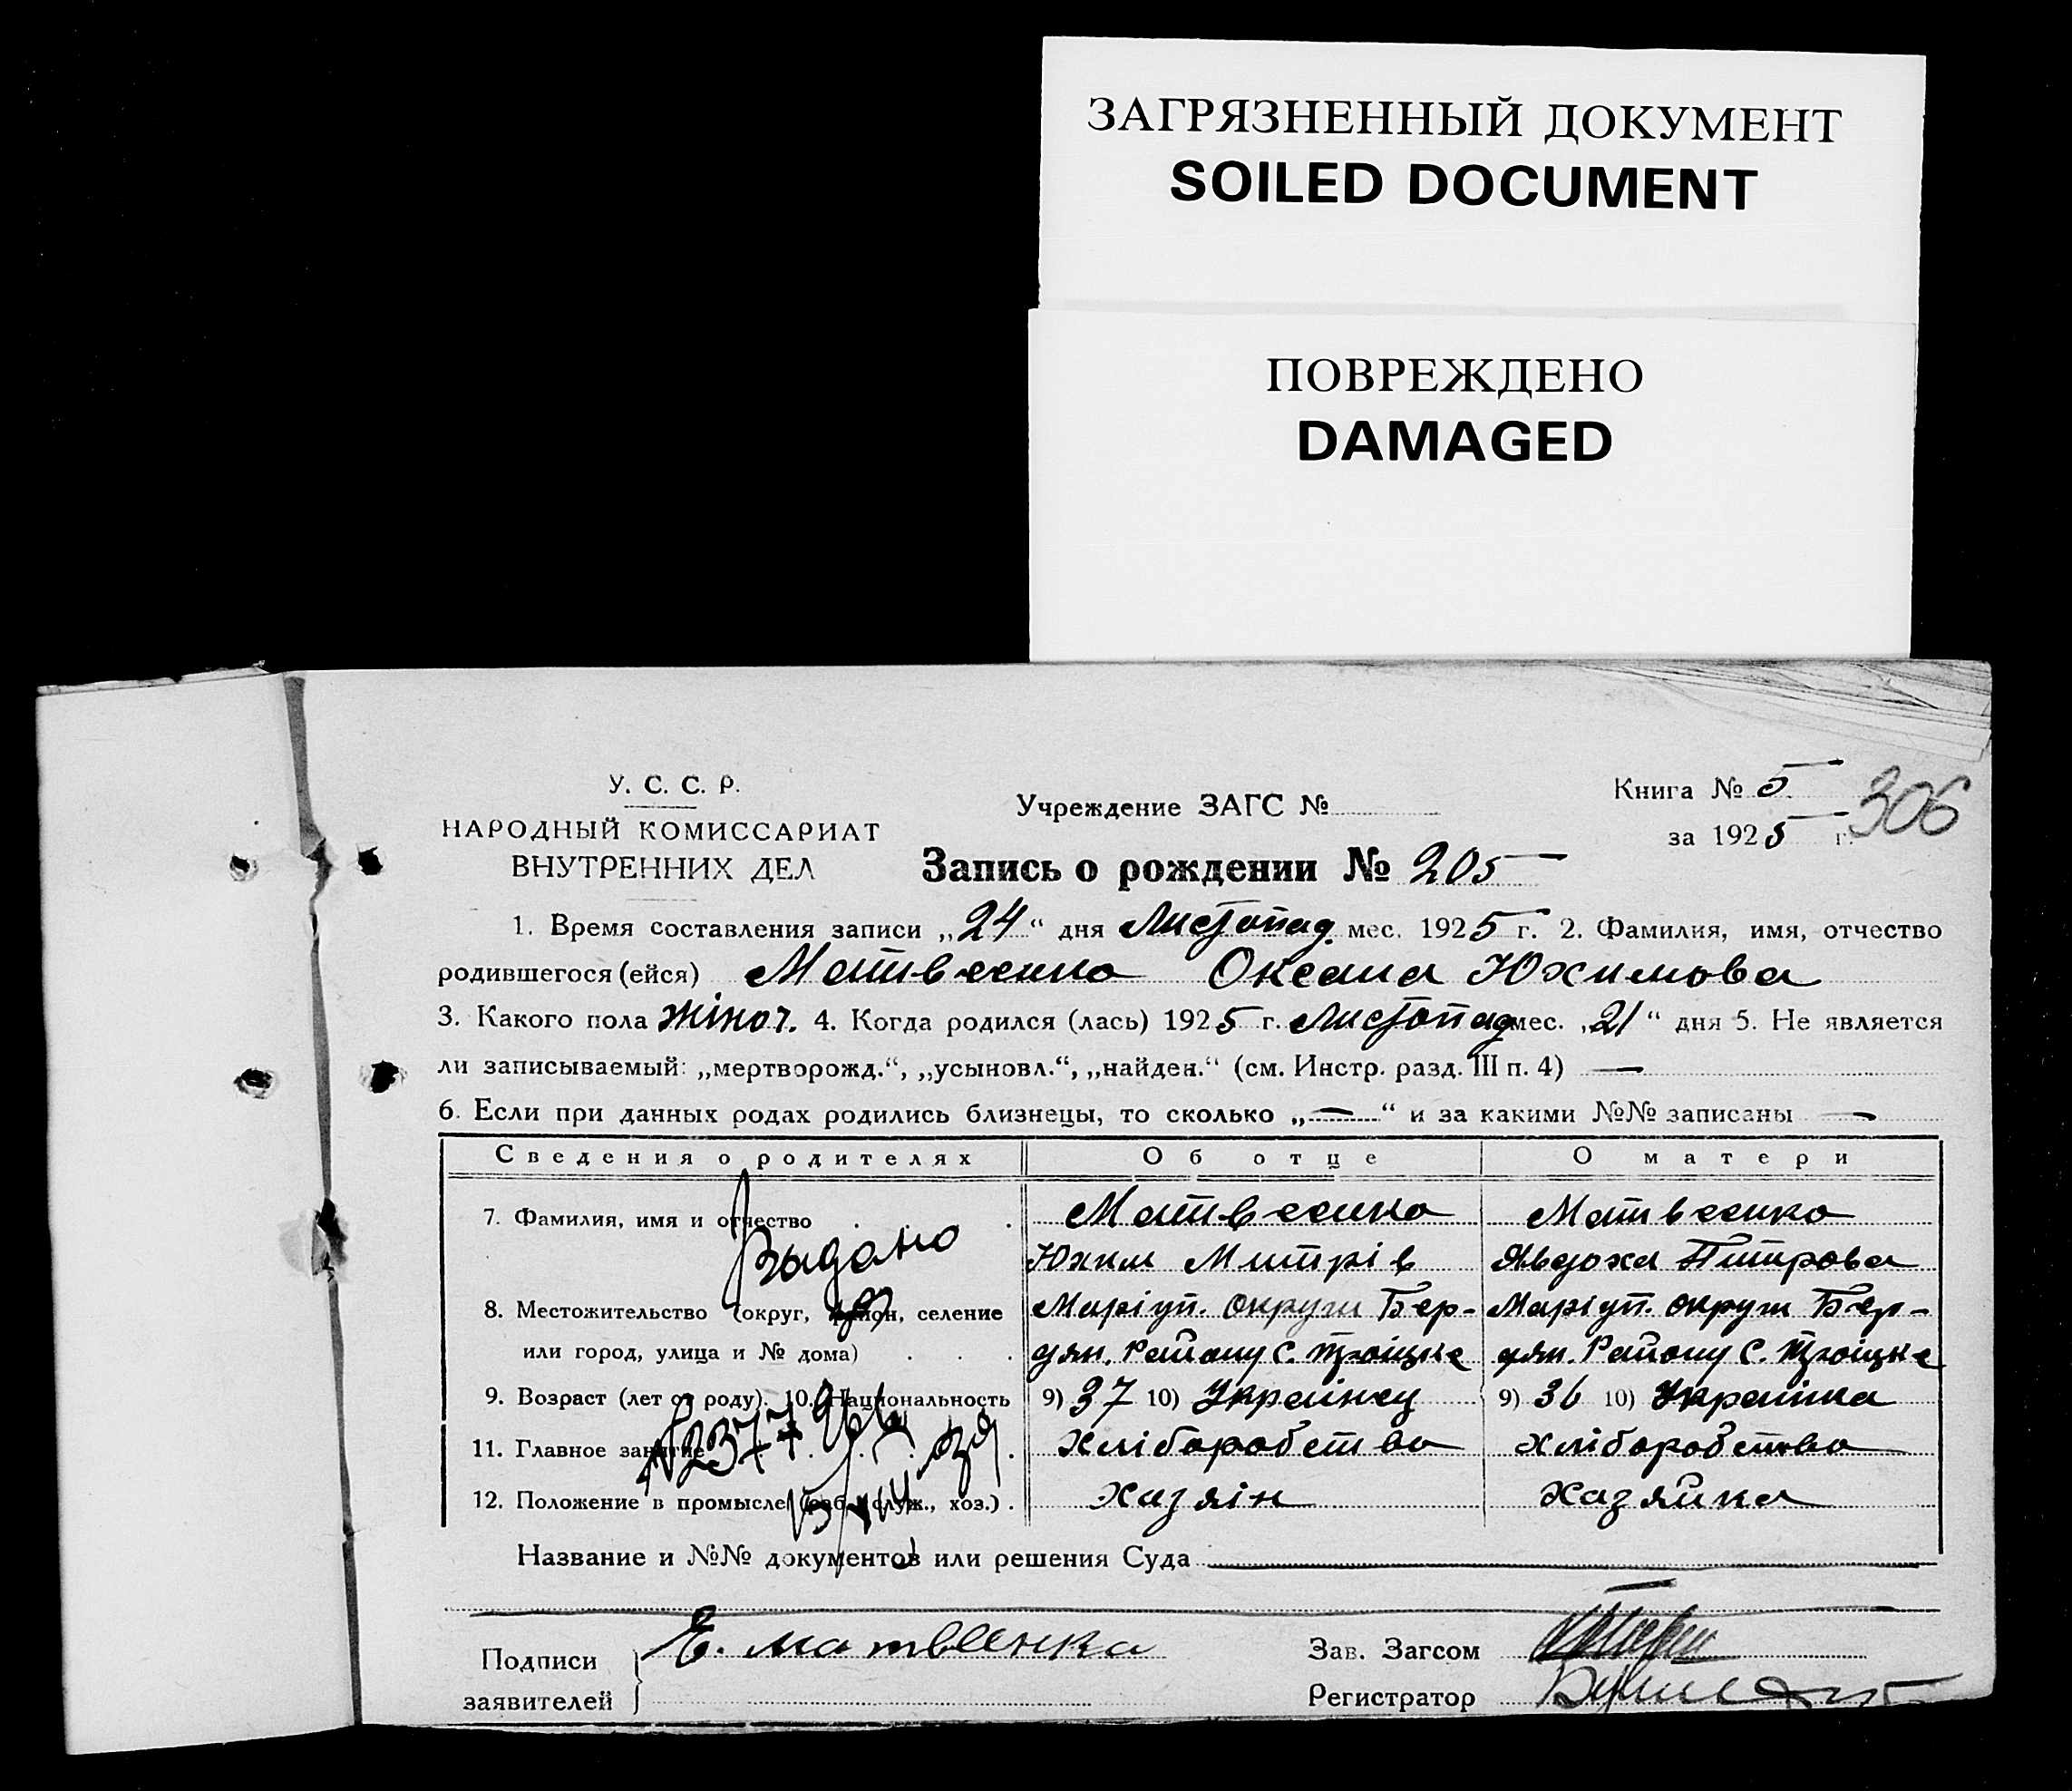 ЗАГРЯЗНЕННЫЙ ДОКУМЕНТ
SOILED DOCUMENT
ПОВРЕЖДЕНО
DAMAGED
У. С. С. Р.
НАРОДНЫЙ КОМИССАРИАТ
ВНУТРЕННИХ ДЕЛ
Учреждение ЗАГС №
Книга № 5
за 1925 г.
306
Запись о рождении № 205
1. Время составления записи „24“ дня Листопад. мес. 1925 г. 2. Фамилия, имя, отчество
родившегося (ейся) Матвеенко Оксана Юхимова
3. Какого пола жіноч. 4. Когда родился (лась) 1925 г. Листопад мес. „21“ дня 5. Не является
ли записываемый: „мертворожд.“, „усыновл.“, „найден.“ (см. Инстр. разд. III п. 4) —
6. Если при данных родах родились близнецы, то сколько „—“ и за какими №№ записаны —
Сведения о родителях Об отце О матери
7. Фамилия, имя и отчество Матвеенко Матвеенко
Юхим Митрів Явдоха Питрова
8. Местожительство (округ, район, селение Маріуп. округи Бер- Маріуп. округи Бер-
или город, улица и № дома) дян. Району С. Троїцке дян. Району С. Троїцке
9. Возраст (лет от роду). 10. Национальность 9) 37 10) Українец 9) 36 10) Українка
11. Главное занятие Хліборобство Хліборобство
12. Положение в промысле (раб., служ., хоз.) Хазяін Хазяйка
Выдано
Название и №№ документов или решения Суда
Подписи
заявителей
Е. Матвеенко
Зав. Загсом
Регистратор